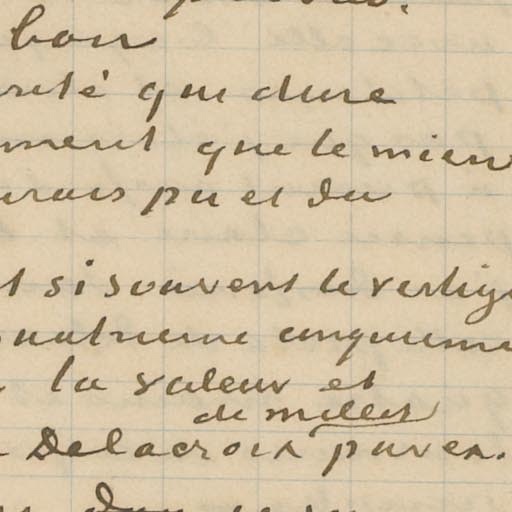 bon
rité qui dure
ment que le mien
urais pu et du
t si souvent le vertige
quatrieme cinquieme
la valeur et
de millet
Delacroix